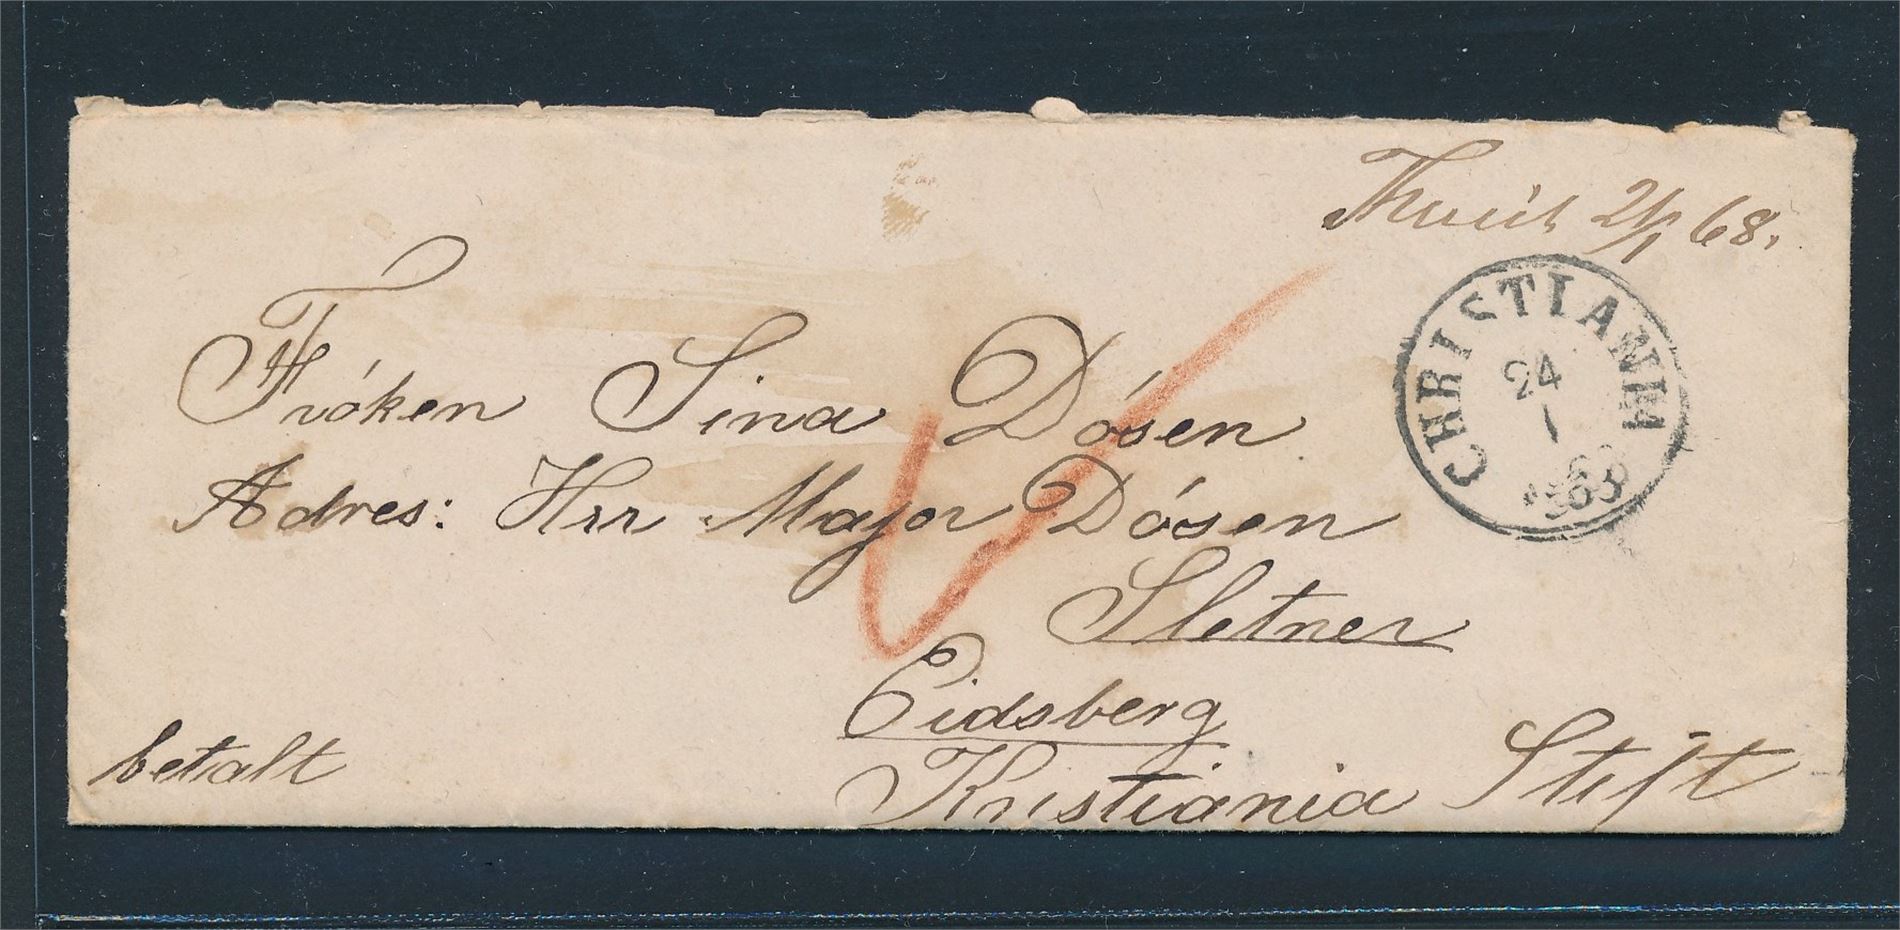 2/1 68.
CHRISTIANIA
24
1
1868
Fróken Sina Dósen
Adres: Herr Major Dósen
Sletner
Eidsberg
Kristiania Stift
betalt